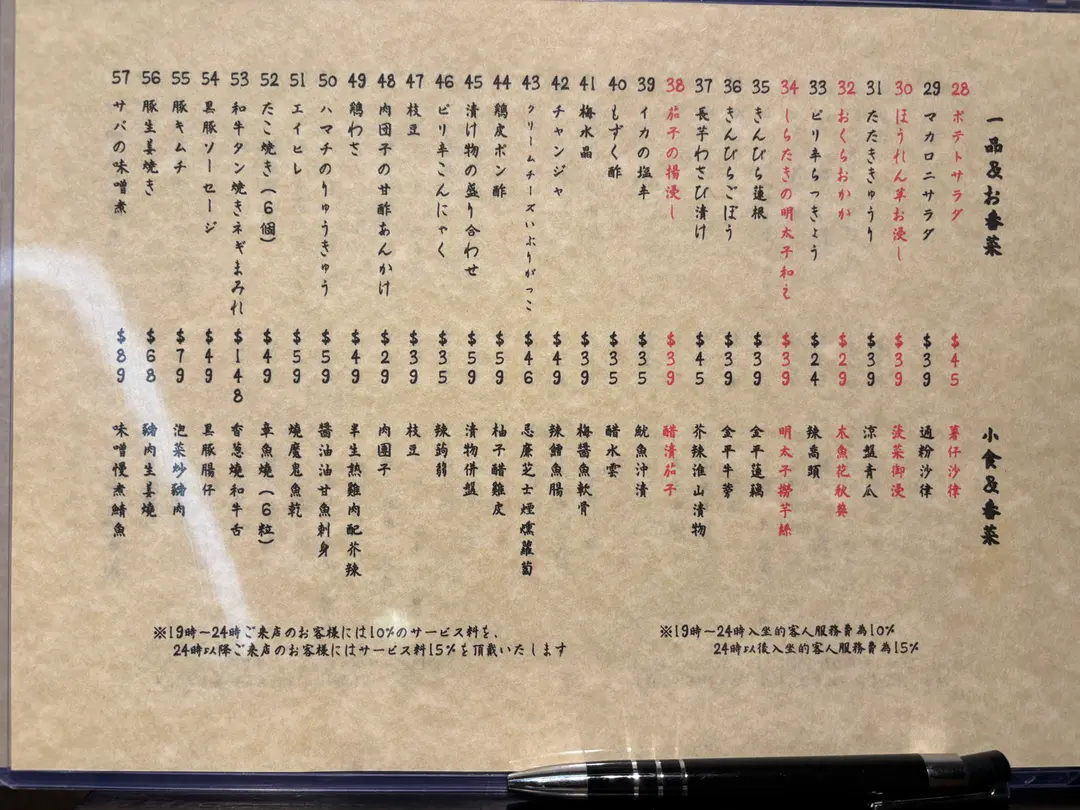 一品&お番菜 小食&番菜
28 ポテトサラダ $45 薯仔沙律
29 マカロニサラダ $39 通粉沙律
30 ほうれん草お浸し $39 菠菜御浸
31 たたききゅうり $39 涼盤青瓜
32 おくらおかか $29 木魚花秋葵
33 ピリ辛らっきょう $24 辣蕎頭
34 しらたきの明太子和え $39 明太子撈芋絲
35 きんぴら蓮根 $39 金平蓮藕
36 きんぴらごぼう $39 金平牛蒡
37 長芋わさび漬け $45 芥辣淮山漬物
38 茄子の揚浸し $39 醋漬茄子
39 イカの塩辛 $35 魷魚沖漬
40 もずく酢 $35 醋水雲
41 梅水晶 $39 梅醬魚軟骨
42 チャンジャ $49 辣鱈魚腸
43 クリームチーズいぶりがっこ $46 忌廉芝士煙燻蘿蔔
44 鶏皮ポン酢 $59 柚子醋雞皮
45 漬け物の盛り合わせ $59 漬物併盤
46 ピリ辛こんにゃく $35 辣蒟蒻
47 枝豆 $39 枝豆
48 肉団子の甘酢あんかけ $29 肉團子
49 鶏わさ $49 半生熟雞肉配芥辣
50 ハマチのりゅうきゅう $59 醬油油甘魚刺身
51 エイヒレ $59 燒魔鬼魚乾
52 たこ焼き(6個) $49 章魚燒(6粒)
53 和牛タン焼きネギまみれ $148 香蔥燒和牛舌
54 黒豚ソーセージ $49 黒豚腸仔
55 豚キムチ $79 泡菜炒豬肉
56 豚生姜焼き $68 豬肉生姜燒
57 サバの味噌煮 $89 味噌慢煮鯖魚
※19時〜24時ご来店のお客様には10%のサービス料を、
24時以降ご来店のお客様にはサービス料15%を頂戴いたします
※19時〜24時入坐的客人服務費為10%
24時以後入坐的客人服務費為15%